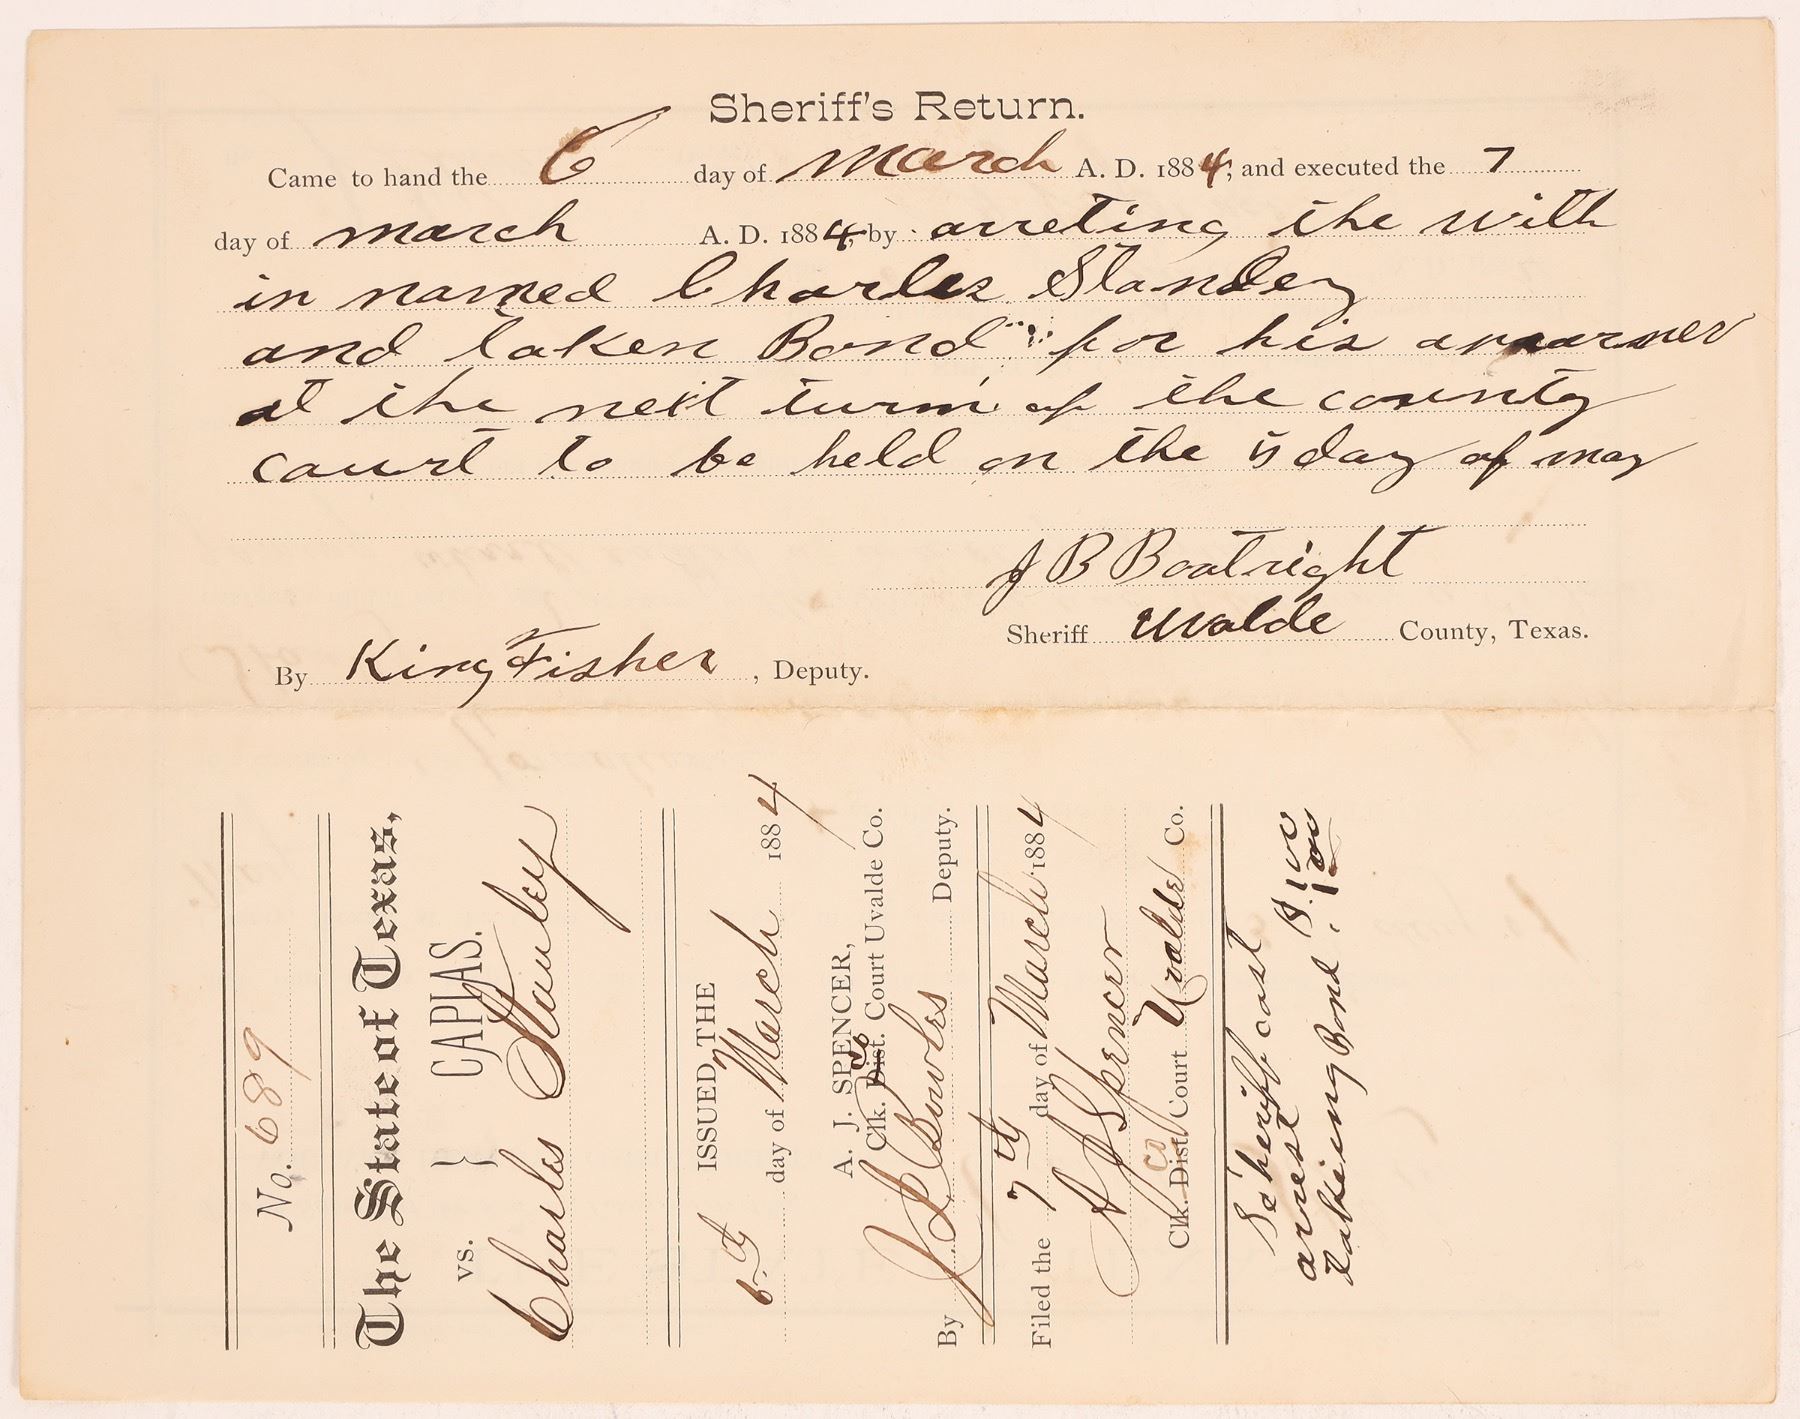 Sheriff's Return.
Came to hand the 6 day of March A. D. 1884, and executed the 7
day of march A. D. 1884, by arreting the with
in named Charles Stanley
and taken Bond for his
at the next turm of the county
court to be held on the day of may
J B Boatright
Sheriff uvalde County, Texas.
By King Fisher, Deputy.
No. 689
The State of Texas,
vs. } CAPIAS.
Charles Stanley
ISSUED THE
6th day of March 1884
A. J. SPENCER,
Clk. Dist. Court Uvalde Co.
By J L Bowles Deputy.
Filed the 7th day of March 1884
A J Spencer
Clk. Dist. Co Court Uvalde Co.
Sheriff cost
arrest $ 1 00
takeing Bond. 1 00